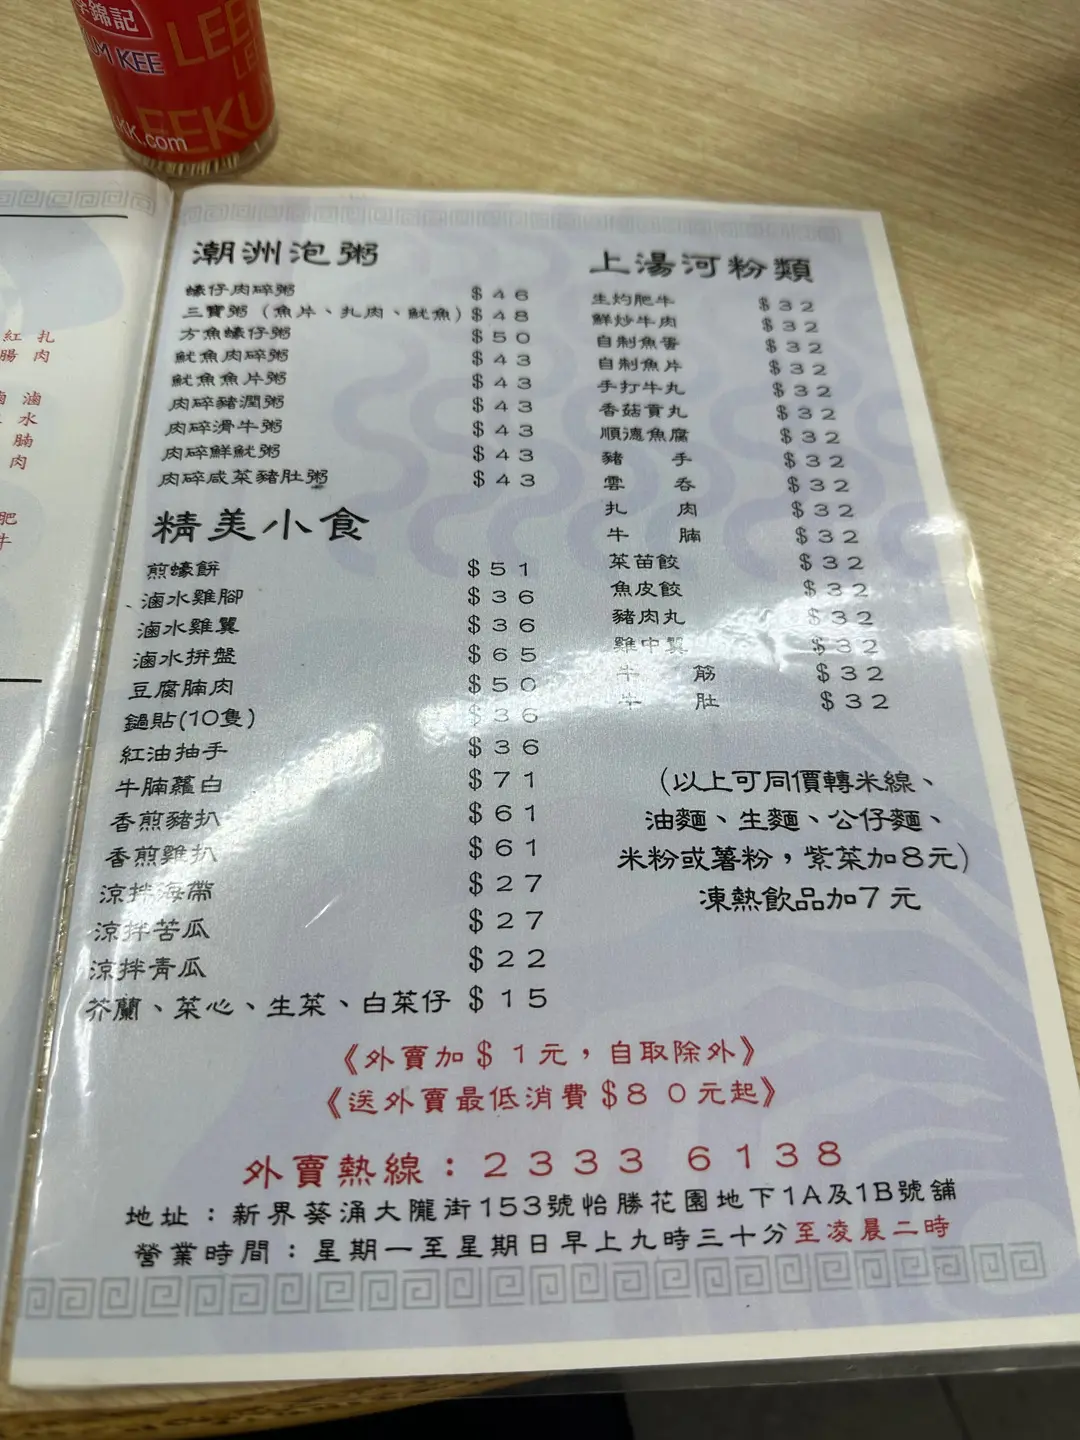 李錦記
UM KEE
LEE
LEEKU
KK.com
紅 扎
腸 肉
滷
水
腩
肉
肥
牛
潮洲泡粥
蠔仔肉碎粥 $46
三寶粥（魚片、扎肉、魷魚）$48
方魚蠔仔粥 $50
魷魚肉碎粥 $43
魷魚魚片粥 $43
肉碎豬潤粥 $43
肉碎滑牛粥 $43
肉碎鮮魷粥 $43
肉碎咸菜豬肚粥 $43
精美小食
煎蠔餅 $51
滷水雞腳 $36
滷水雞翼 $36
滷水拼盤 $65
豆腐腩肉 $50
鍋貼(10隻) $36
紅油抽手 $36
牛腩蘿白 $71
香煎豬扒 $61
香煎雞扒 $61
涼拌海帶 $27
涼拌苦瓜 $27
涼拌青瓜 $22
芥蘭、菜心、生菜、白菜仔 $15
上湯河粉類
生灼肥牛 $32
鮮炒牛肉 $32
自制魚蛋 $32
自制魚片 $32
手打牛丸 $32
香菇貢丸 $32
順德魚腐 $32
豬手 $32
雲吞 $32
扎肉 $32
牛腩 $32
菜苗餃 $32
魚皮餃 $32
豬肉丸 $32
雞中翼 $32
牛筋 $32
牛肚 $32
（以上可同價轉米線、
油麵、生麵、公仔麵、
米粉或薯粉，紫菜加8元）
凍熱飲品加7元
《外賣加$1元，自取除外》
《送外賣最低消費$80元起》
外賣熱線：2333 6138
地址：新界葵涌大隴街153號怡勝花園地下1A及1B號舖
營業時間：星期一至星期日早上九時三十分至凌晨二時